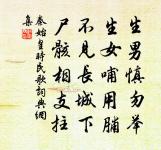 生男慎勿举
生女哺用脯
不见长城下
尸骸相支拄
秦始皇時民歌詞典網
集